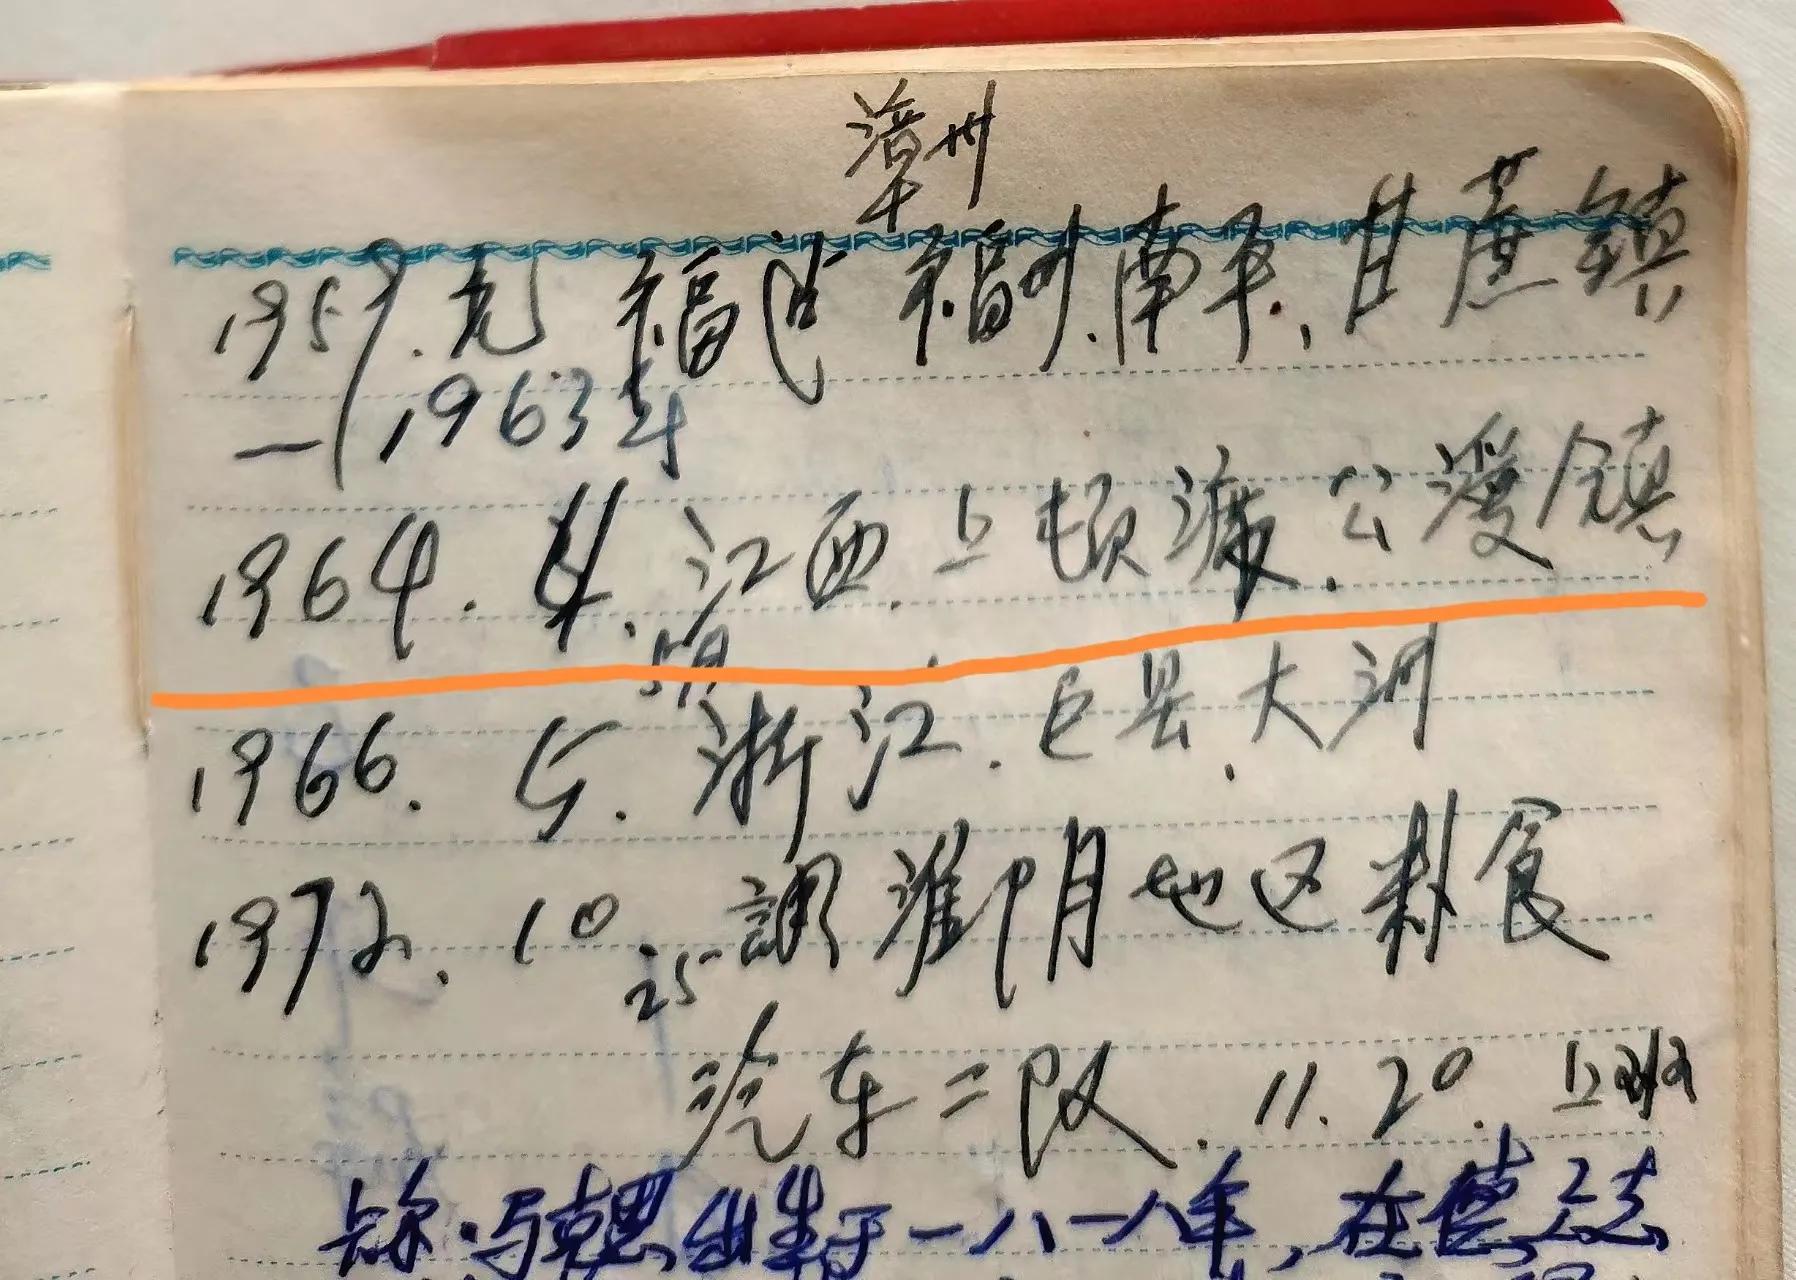 漳州
1957.元 福建 福州.南平.甘蔗镇
—1963年
1964.4.江西.上顿渡.公溪镇
1966.5.浙江.巨县.大洲
1972.10.25調淮阴地区粮食
汽车二队.11.20.上班
卡尔·马克思出生于一八一八年,在德意志